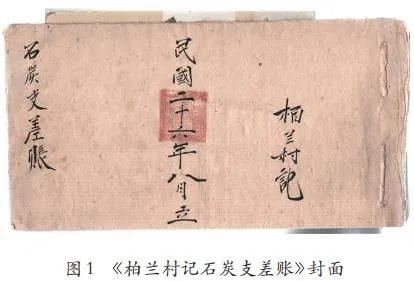 柏兰村記
民國二十六年八月立
石炭支差賬
图1 《柏兰村记石炭支差账》封面